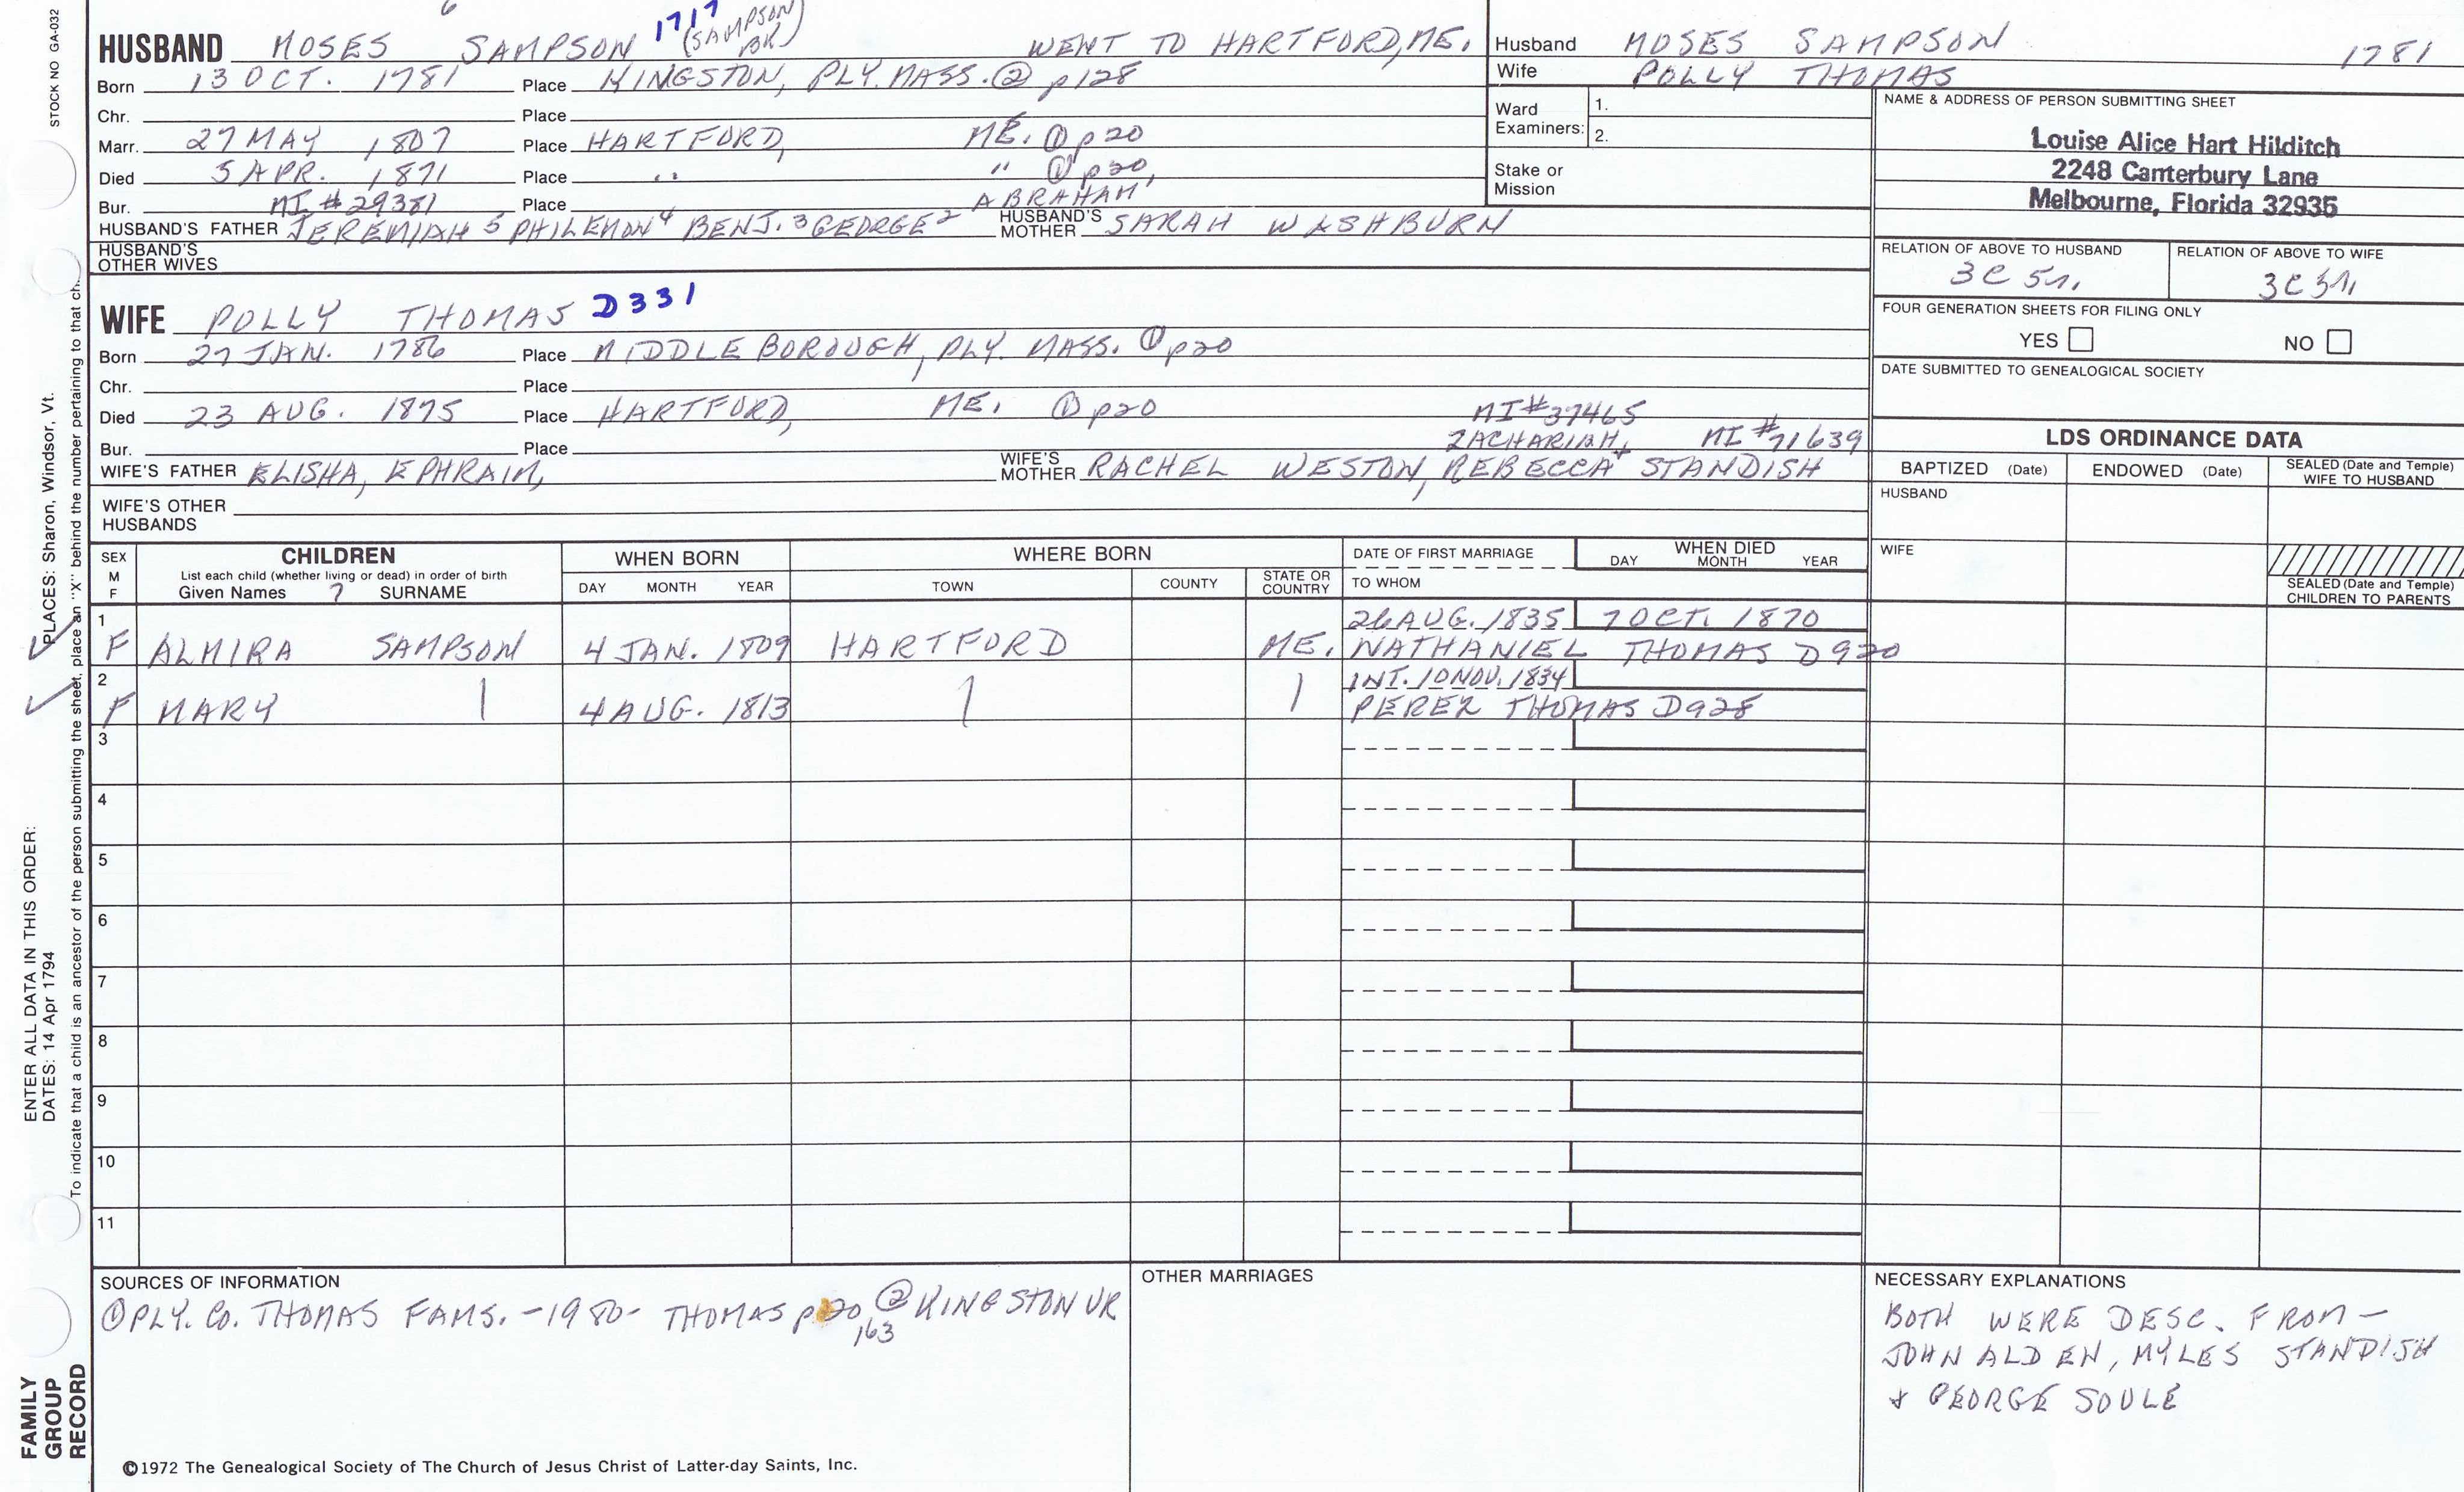 STOCK NO GA-032
6
HUSBAND MOSES SAMPSON 1717 (SAMPSON BK) WENT TO HARTFORD, ME.
Born 13 OCT. 1781 Place KINGSTON, PLY. MASS. ② p128
Chr. Place
Marr. 27 MAY 1807 Place HARTFORD, ME. ① p20
Died 5 APR. 1871 Place " " ① p20
Bur. MI # 29381 Place ABRAHAM'
HUSBAND'S FATHER JEREMIAH 5 PHILEMON 4 BENJ. 3 GEORGE 2 HUSBAND'S MOTHER SARAH WASHBURN
HUSBAND'S OTHER WIVES
WIFE POLLY THOMAS D331
Born 27 JAN. 1786 Place MIDDLEBOROUGH, PLY. MASS. ① p20
Chr. Place
Died 23 AUG. 1875 Place HARTFORD, ME. ① p20 MI #37465
Bur. Place ZACHARIAH, MI #71639
WIFE'S FATHER ELISHA, EPHRAIM, WIFE'S MOTHER RACHEL WESTON, REBECCA 4 STANDISH
WIFE'S OTHER HUSBANDS
Husband MOSES SAMPSON 1781
Wife POLLY THOMAS
Ward Examiners: 1.
2.
Stake or Mission
NAME & ADDRESS OF PERSON SUBMITTING SHEET
Louise Alice Hart Hilditch
2248 Canterbury Lane
Melbourne, Florida 32935
RELATION OF ABOVE TO HUSBAND RELATION OF ABOVE TO WIFE
3C 5r. 3C 3r.
FOUR GENERATION SHEETS FOR FILING ONLY
YES NO
DATE SUBMITTED TO GENEALOGICAL SOCIETY
LDS ORDINANCE DATA
BAPTIZED (Date) ENDOWED (Date) SEALED (Date and Temple) WIFE TO HUSBAND
HUSBAND
WIFE
SEALED (Date and Temple) CHILDREN TO PARENTS
SEX M F CHILDREN WHEN BORN WHERE BORN DATE OF FIRST MARRIAGE WHEN DIED
List each child (whether living or dead) in order of birth
Given Names ? SURNAME DAY MONTH YEAR TOWN COUNTY STATE OR COUNTRY TO WHOM DAY MONTH YEAR
1 26 AUG. 1835 7 OCT. 1870
F ALMIRA SAMPSON 4 JAN. 1809 HARTFORD ME. NATHANIEL THOMAS D920
2 INT. 10 NOV. 1834
F MARY | 4 AUG. 1813 | | PEREZ THOMAS D928
3
4
5
6
7
8
9
10
11
SOURCES OF INFORMATION
① PLY. CO. THOMAS FAMS. -1980- THOMAS p20 ② KINGSTON VR
163
OTHER MARRIAGES
NECESSARY EXPLANATIONS
BOTH WERE DESC. FROM -
JOHN ALDEN, MYLES STANDISH
& GEORGE SOULE
©1972 The Genealogical Society of The Church of Jesus Christ of Latter-day Saints, Inc.
FAMILY GROUP RECORD
ENTER ALL DATA IN THIS ORDER:
DATES: 14 Apr 1794
PLACES: Sharon, Windsor, Vt.
To indicate that a child is an ancestor of the person submitting the sheet, place an "X" behind the number pertaining to that ch